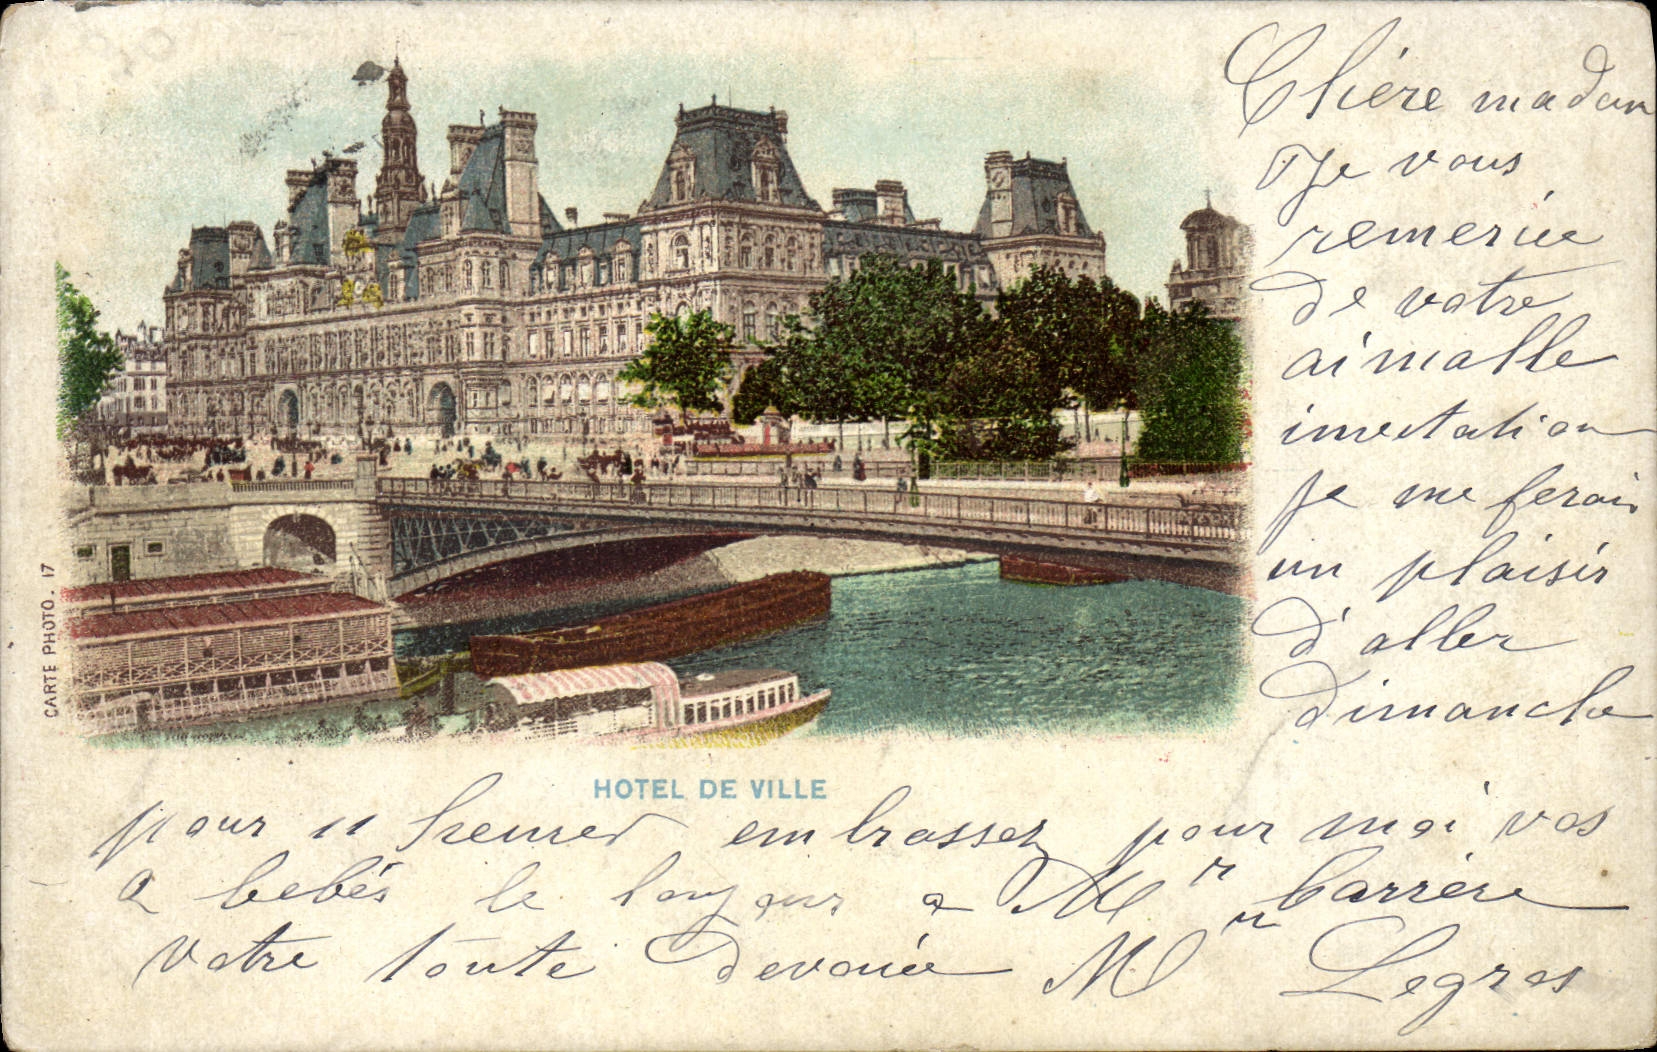 Chère madam
Je vous
remerciee
de votre
aimalle
invetation
je me ferai
un plaisir
d'aller
dimanche
CARTE PHOTO. 17
HOTEL DE VILLE
pour 11 heures embrasser pour moi vos
2 bebés le a Mr Carrère
votre toute devouée M Legros